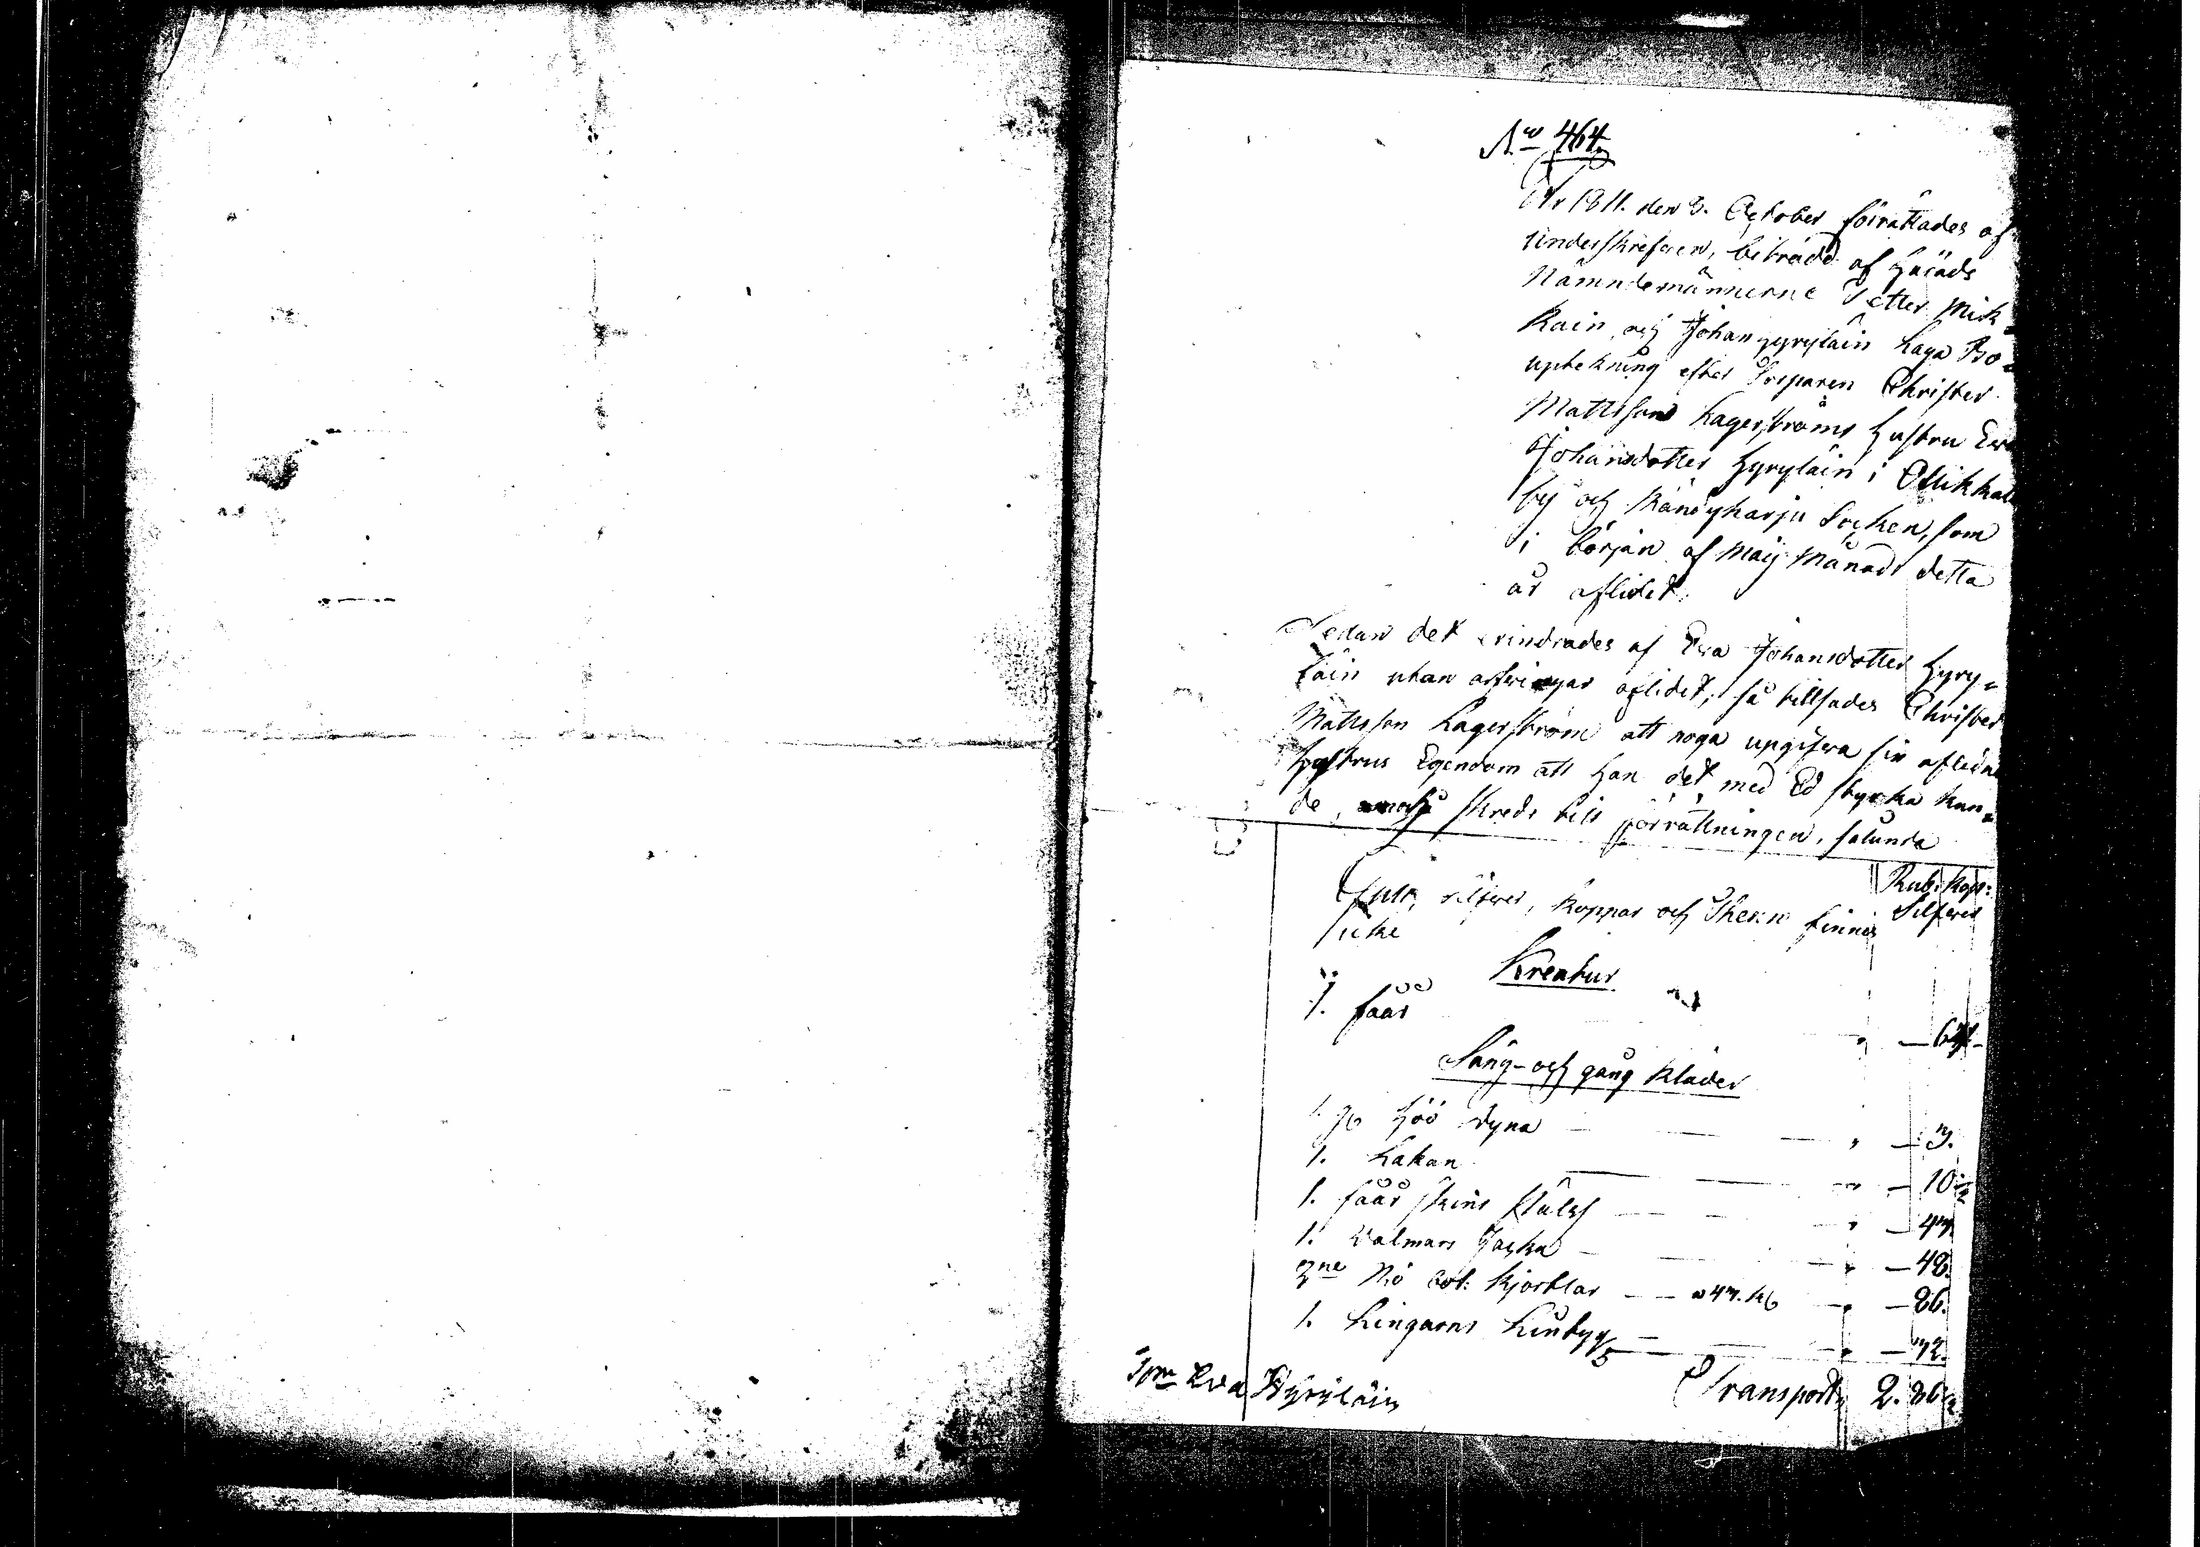 No 464.
År 1811. den 3. October förrättades af
underskrefven, biträdd af Häräds
Nämndemännerne Petter Mik=
kain, och Johan Hyryläin Laga Bo=
uptekning efter Torparen Christer
Mattsson Lagerströms Hustru Eva
Johansdotter Hyryläin i Ollikkala
by och Kändykarju Sochen, som
i början af Maij Månad detta
år aflidet.
Sedan det erindrades af Eva Johansdotter Hyry=
läin utan arfvingar aflidet, så tillsades Christer
Mattsson Lagerström att noga upgifva sin aflidne
Hustrus Egendom att Han det med Ed styrka kun=
de, och skreds till förrättningen, sålunda
Rub. kop:
Silfver
Gull, silfver, koppar och Thenn finnes
icke
Kreatur
1. fåår — 64
Säng- och gång kläder
1. Höö dyna — 3.
1. Lakan — 10 1/2
1. fåår skins fläls — 47.
1. Valmars Jacka — 48.
2ne Nö kjortlar — a 43. k — 86.
1. Lingarns Lintyg — 72.
Transport 2. 86
Eva Hyryläin